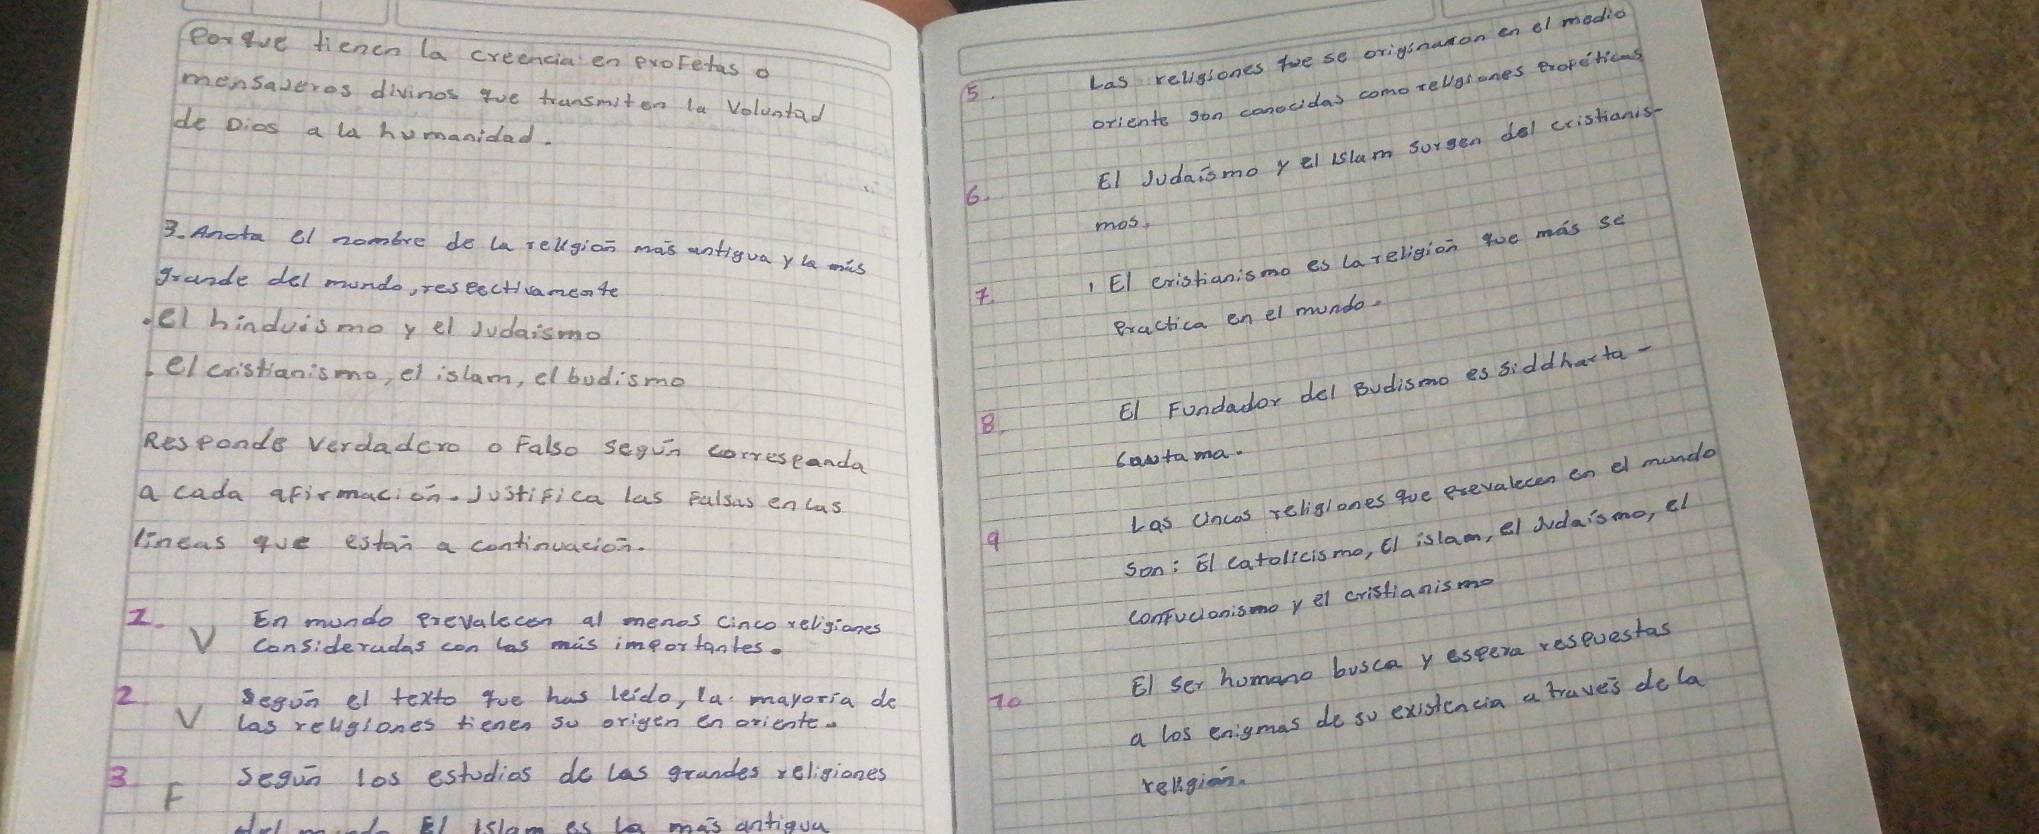 Porque tienen la creencia en profetas o
mensajeros divinos que transmiten la Voluntad
de Dios a la humanidad.
3. Anota el nombre de la religión más antigua y la más
grande del mundo, respectivamente
.el hinduismo y el Judaismo
.el cristianismo, el islam, el budismo
Responde Verdadero o Falso según corresponda
a cada afirmación. Justifica las falsas en las
lineas que están a continuación.
1. En mundo prevalecen al menos cinco religiones
V consideradas con las más importantes.
2 Según el texto que has leído, la mayoría de
V las religiones tienen su origen en oriente.
3 Según los estudios de las grandes religiones
F
El islam es la más antigua
5. Las religiones que se originaron en el medio
oriente son conocidas como religiones proféticas
6. El Judaísmo y el islam surgen del cristianis-
mos.
7. El cristianismo es la religión que más se
practica en el mundo.
8. El Fundador del Budismo es Siddharta-
Gautama.
9 Las cincos religiones que prevalecen en el mundo
son: El catolicismo, el islam, el Judaísmo, el
confucionismo y el cristianismo
10 El ser humano busca y espera respuestas
a los enigmas de su existencia a través de la
religión.